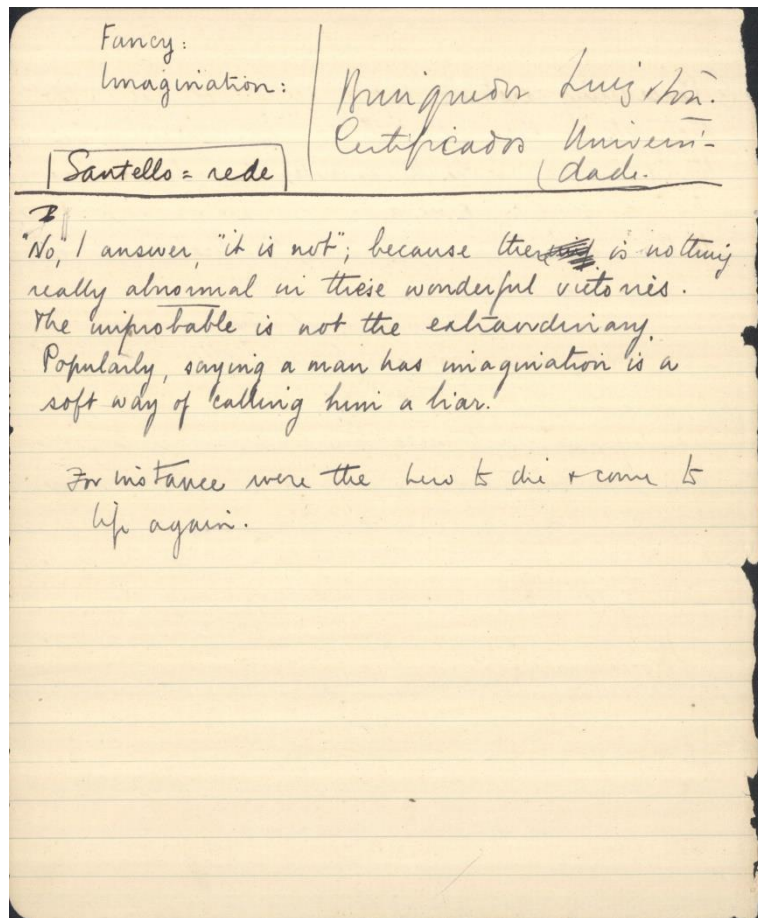 Fancy:
Imagination:
Brinquedos Luiz
Certificados Universi-
dade.
Santello = rede
"No," I answer, "it is not"; because there is nothing
really abnormal in these wonderful victories.
The improbable is not the extraordinary.
Popularly, saying a man has imagination is a
soft way of calling him a liar.
For instance were the hero to die & come to
life again.